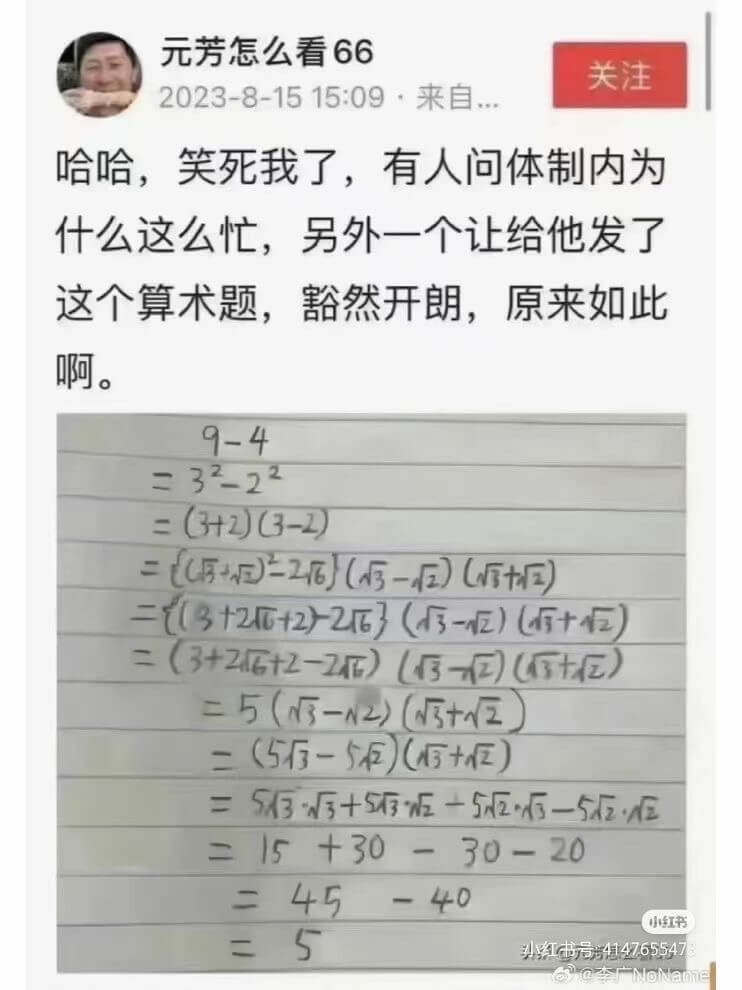 元芳怎么看66
2023-8-15 15:09 · 来自...
关注
哈哈，笑死我了，有人问体制内为
什么这么忙，另外一个让给他发了
这个算术题，豁然开朗，原来如此
啊。
9-4
= 3²-2²
= (3+2)(3-2)
= {(√3+√2)²-2√6}(√3-√2)(√3+√2)
= {(3+2√6+2)-2√6}(√3-√2)(√3+√2)
= (3+2√6+2-2√6)(√3-√2)(√3+√2)
= 5(√3-√2)(√3+√2)
= (5√3-5√2)(√3+√2)
= 5√3·√3+5√3·√2-5√2·√3-5√2·√2
= 15+30-30-20
= 45-40
= 5
小红书
小红书号: 4147655473
@李广NoName